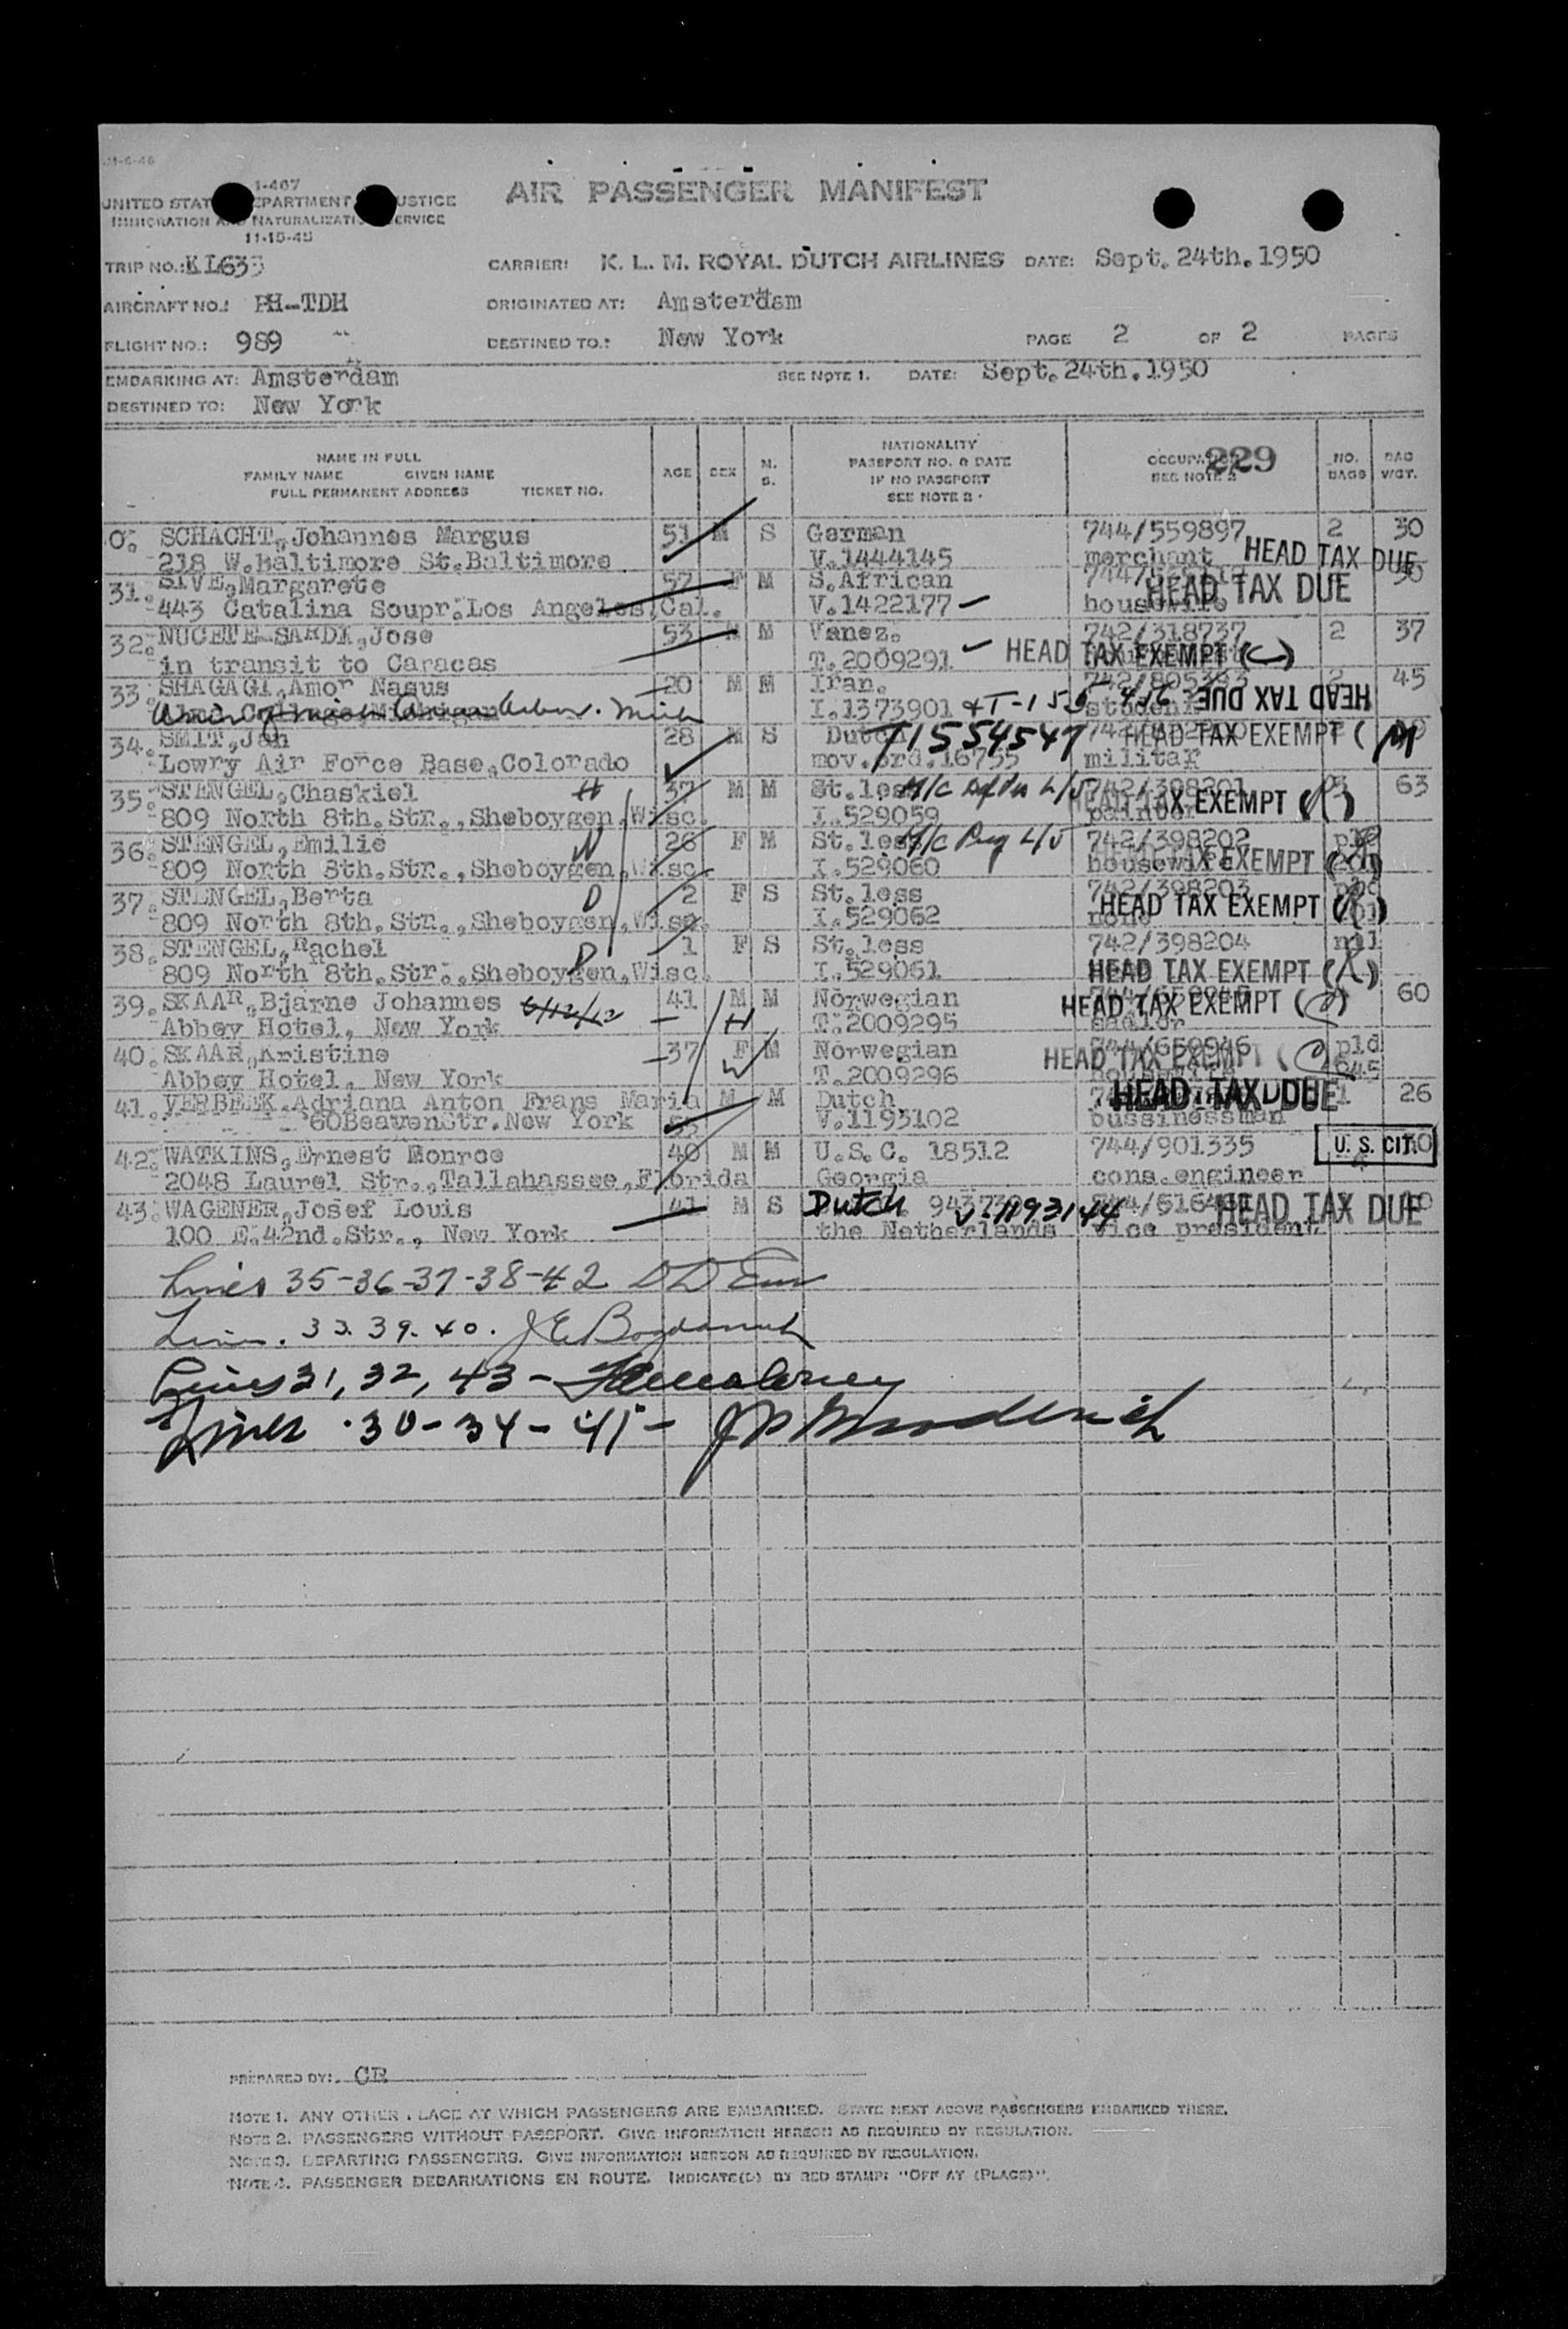 1-407
UNITED STATES DEPARTMENT JUSTICE
IMMIGRATION AND NATURALIZATION SERVICE
11-15-45
AIR PASSENGER MANIFEST
TRIP NO.: KL633 CARRIER: K. L. M. ROYAL DUTCH AIRLINES DATE: Sept. 24th. 1950
AIRCRAFT NO.: PH-TDH ORIGINATED AT: Amsterdam
FLIGHT NO.: 989 DESTINED TO.: New York PAGE 2 OF 2 PAGES
EMBARKING AT: Amsterdam SEE NOTE 1. DATE: Sept. 24th. 1950
DESTINED TO: New York
NAME IN FULL
FAMILY NAME GIVEN NAME
FULL PERMANENT ADDRESS TICKET NO.
AGE SEX M. S.
NATIONALITY
PASSPORT NO. & DATE
IF NO PASSPORT
SEE NOTE 2
OCCUPATION 229
SEE NOTE 2
NO. BAGS
BAG WGT.
0. SCHACHT, Johannes Margus 51 M S German 744/559897 2 30
218 W. Baltimore St. Baltimore V.1444145 merchant HEAD TAX DUE
31. SIVE, Margarete 57 F M S.African
443 Catalina Soupr. Los Angeles, Cal. V.1422177 housewife HEAD TAX DUE
32. NUCETE-SARDI, Jose 53 M M Venez. 742/318737 2 37
in transit to Caracas T.2009291 HEAD TAX EXEMPT (C)
33. SHAGAGI, Amor Nagus 20 M M Iran. 742/805393 2 45
I.1373901 student HEAD TAX DUE
34. SMIT, Jan 28 M S Dutch T1554547 HEAD TAX EXEMPT (M
Lowry Air Force Base, Colorado mov.ord.16755 militar
35. STENGEL, Chaskiel H 37 M M St.less 742/398201 63
809 North 8th. Str., Sheboygen, Wisc. I.529059 painter HEAD TAX EXEMPT
36. STENGEL, Emilie W 26 F M St.less 742/398202
809 North 8th. Str., Sheboygen, Wisc. I.529060 housewife EXEMPT
37. STENGEL, Berta D 2 F S St.less 742/398203
809 North 8th. Str., Sheboygen, Wisc. I.529062 none HEAD TAX EXEMPT
38. STENGEL, Rachel D 1 F S St.less 742/398204 nil
809 North 8th. Str., Sheboygen, Wisc. I.529061 HEAD TAX EXEMPT
39. SKAAR, Bjarne Johannes 41 M M Norwegian HEAD TAX EXEMPT 60
Abbey Hotel, New York H T.2009295 sailor
40. SKAAR, Kristine 37 F M Norwegian 744/659946 pld
Abbey Hotel, New York W T.2009296 HEAD TAX EXEMPT
41. VERBEEK, Adriana Anton Frans Maria M M Dutch HEAD TAX DUE 1 26
60BeavenStr. New York V.1193102 bussinessman
42. WATKINS, Ernest Monroe 40 M M U.S.C. 18512 744/901335 U. S. CIT.
2048 Laurel Str., Tallahassee, Florida Georgia cons.engineer
43. WAGENER, Josef Louis 41 M S Dutch HEAD TAX DUE
100 E. 42nd. Str., New York the Netherlands vice president
Lines 35-36-37-38-42
Lines. 33. 39. 40.
Lines 31, 32, 43 -
Lines 30 - 34 - 41 -
PREPARED BY: CE
NOTE 1. ANY OTHER PLACE AT WHICH PASSENGERS ARE EMBARKED. STATE NEXT ABOVE PASSENGERS EMBARKED THERE.
NOTE 2. PASSENGERS WITHOUT PASSPORT. GIVE INFORMATION HEREON AS REQUIRED BY REGULATION.
NOTE 3. DEPARTING PASSENGERS. GIVE INFORMATION HEREON AS REQUIRED BY REGULATION.
NOTE 4. PASSENGER DEBARKATIONS EN ROUTE. INDICATE(D) BY RED STAMP: "OFF AT (PLACE)".